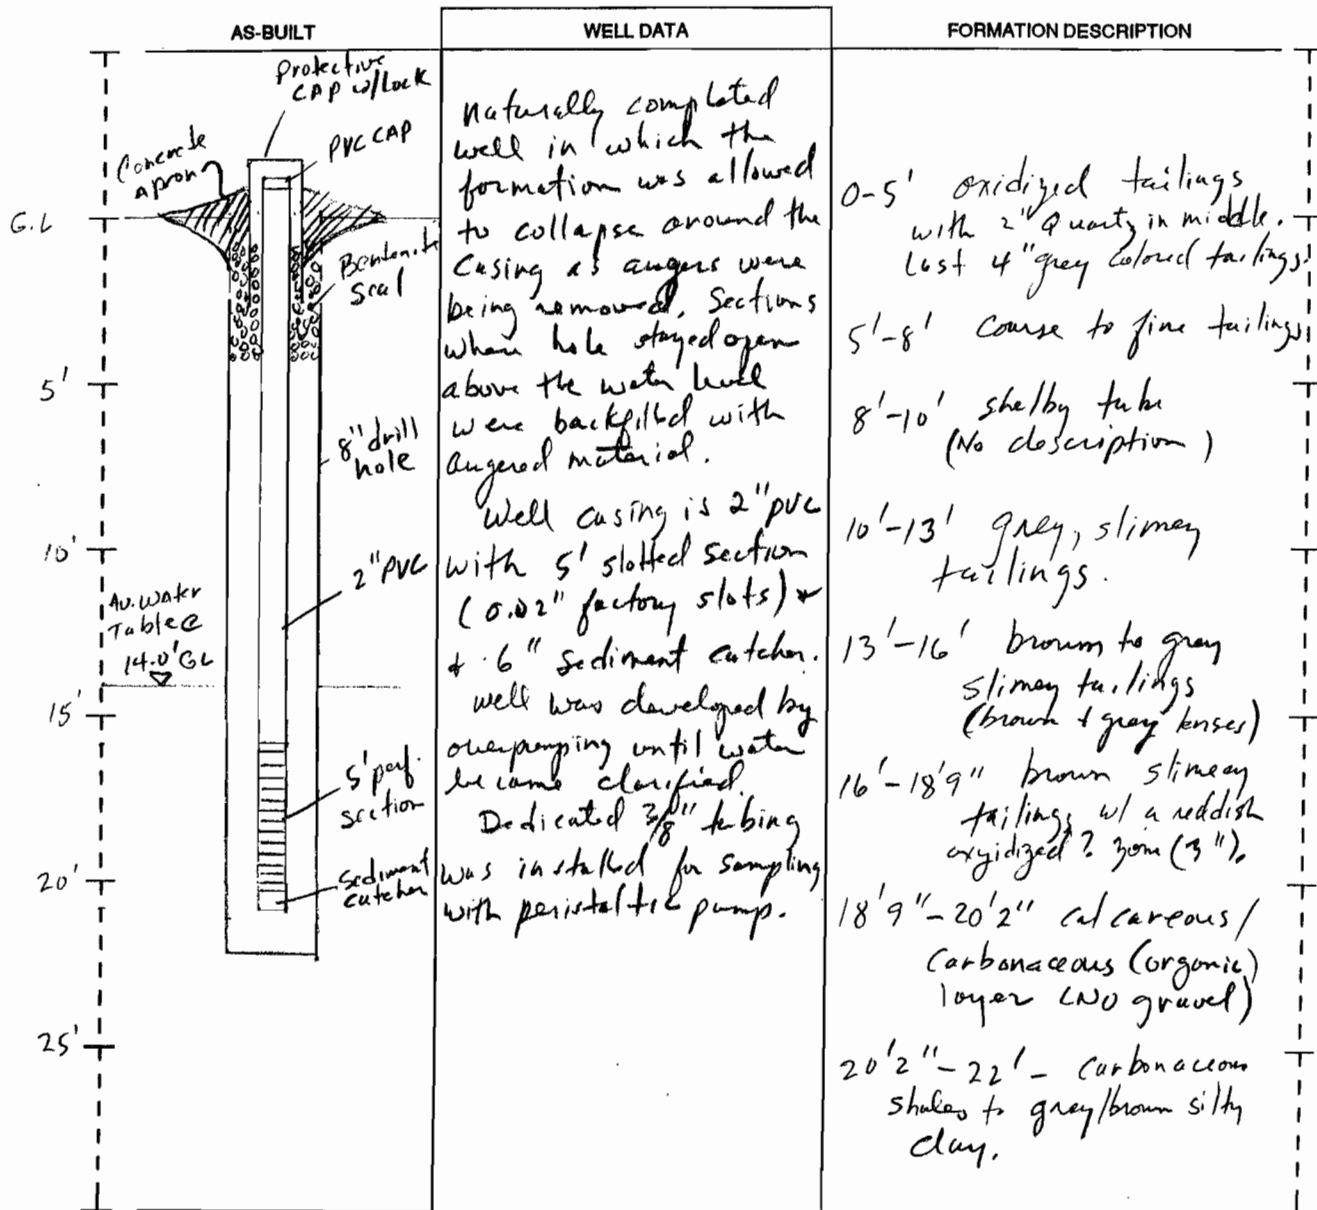 AS-BUILT
Protective
CAP w/Lock
PVC CAP
Concrete
apron
G.L
Bentonite
Seal
5'
8" drill
hole
10'
2" PVC
Av. Water
Table @
14.0' GL
15'
5' perf.
section
20'
Sediment
catcher
25'
WELL DATA
Naturally completed
well in which the
formation was allowed
to collapse around the
Casing as augers were
being removed. Sections
where hole stayed open
above the water level
were backfilled with
augered material.
Well casing is 2" PVC
with 5' slotted section
(0.02" factory slots)
+ 6" Sediment catcher.
Well was developed by
overpumping until water
became clarified.
Dedicated 3/8" tubing
was installed for sampling
with peristaltic pump.
FORMATION DESCRIPTION
0-5' oxidized tailings
with 2" Quartz in middle.
Last 4" grey colored tailings.
5'-8' Course to fine tailings
8'-10' shelby tube
(No description)
10'-13' grey, slimey
tailings.
13'-16' brown to gray
slimey tailings
(brown + gray lenses)
16'-18'9" brown slimey
tailings w/ a reddish
oxyidized? zone (3").
18'9"-20'2" calcareous/
Carbonaceous (organic)
layer (NO gravel)
20'2"-22' - Carbonaceous
shales to gray/brown silty
clay.